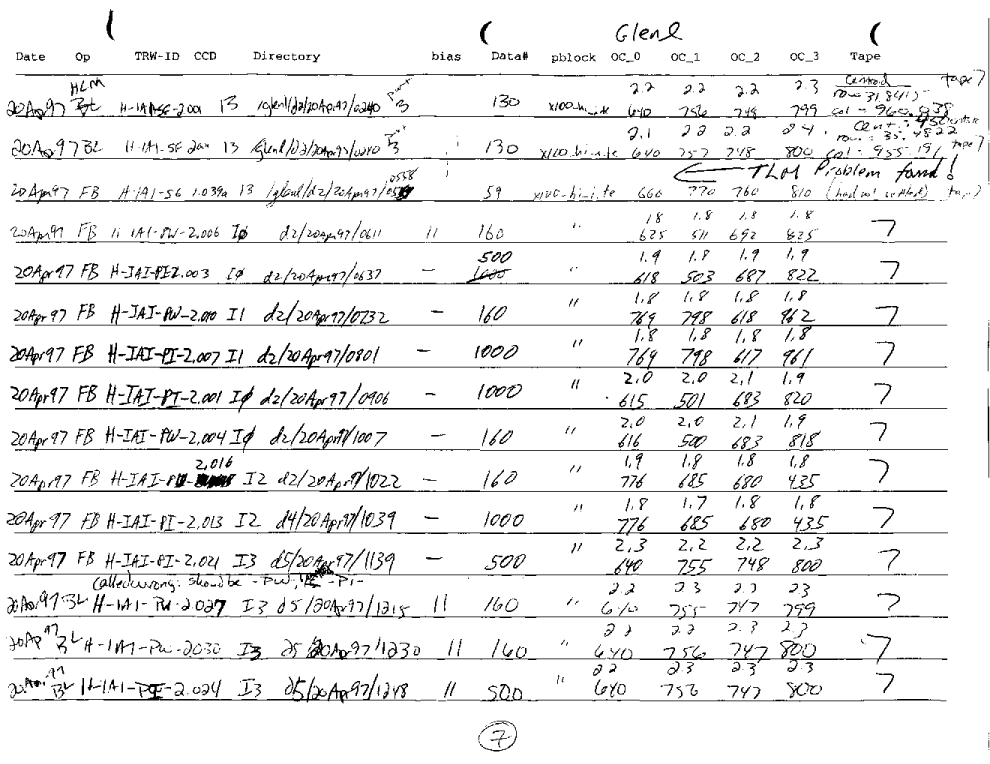 Glenl
Date Op TRW-ID CCD Directory bias Data# pblock OC_0 OC_1 OC_2 OC_3 Tape
HLM 2.2 2.2 2.2 2.3 Centroid tape 7
20Apr97 BL H-IAI-SF-2.001 I3 /glenl/d2/20Apr97/0240 130 x100-hi-ite 640 756 748 799
2.1 2.2 2.2 2.4
20Apr97 BL H-IAI-SF I3 /glenl/d2/20Apr97/0240 130 x100-hi-ite 640 757 748 800 col - 955.191 tape 7
TLM Problem found!
0558
20Apr97 FB H-IAI-SG 1.039a I3 /glenl/d2/20Apr97/ 59 x100-hi-ite 660 770 760 810 (had not settled) tape 7
1.8 1.8 1.8 1.8
20Apr97 FB H-IAI-PW-2.006 IØ d2/20Apr97/0611 11 160 " 625 511 692 825 7
500 1.9 1.8 1.9 1.9
20Apr97 FB H-IAI-PI2.003 IØ d2/20Apr97/0637 - 1000 " 618 503 687 822 7
1.8 1.8 1.8 1.8
20Apr97 FB H-IAI-PW-2.010 I1 d2/20Apr97/0732 - 160 " 769 798 618 962 7
1.8 1.8 1.8 1.8
20Apr97 FB H-IAI-PI-2.007 I1 d2/20Apr97/0801 - 1000 " 769 798 617 961 7
2.0 2.0 2.1 1.9
20Apr97 FB H-IAI-PI-2.001 IØ d2/20Apr97/0906 - 1000 " 615 501 683 820 7
2.0 2.0 2.1 1.9
20Apr97 FB H-IAI-PW-2.004 IØ d2/20Apr97/1007 - 160 " 616 500 683 818 7
2.016 1.9 1.8 1.8 1.8
20Apr97 FB H-IAI-PW- I2 d2/20Apr97/1022 - 160 " 776 685 680 435 7
1.8 1.7 1.8 1.8
20Apr97 FB H-IAI-PI-2.013 I2 d4/20Apr97/1039 - 1000 " 776 685 680 435 7
2.3 2.2 2.2 2.3
20Apr97 FB H-IAI-PI-2.021 I3 d5/20Apr97/1139 - 500 " 640 755 748 800 7
called wrong: should be -PW, -PI-
2.2 2.3 2.3 2.3
20Apr97 BL H-IAI-PW-2.027 I3 d5/20Apr97/1215 11 160 " 640 755 747 799 7
2.2 2.2 2.3 2.3
20Apr97 BL H-IAI-PW-2030 I3 d5/20Apr97/1230 11 160 " 640 756 747 800 7
2.2 2.3 2.3 2.3
20Apr97 BL H-IAI-PI-2.024 I3 d5/20Apr97/1248 11 500 " 640 756 747 800 7
7